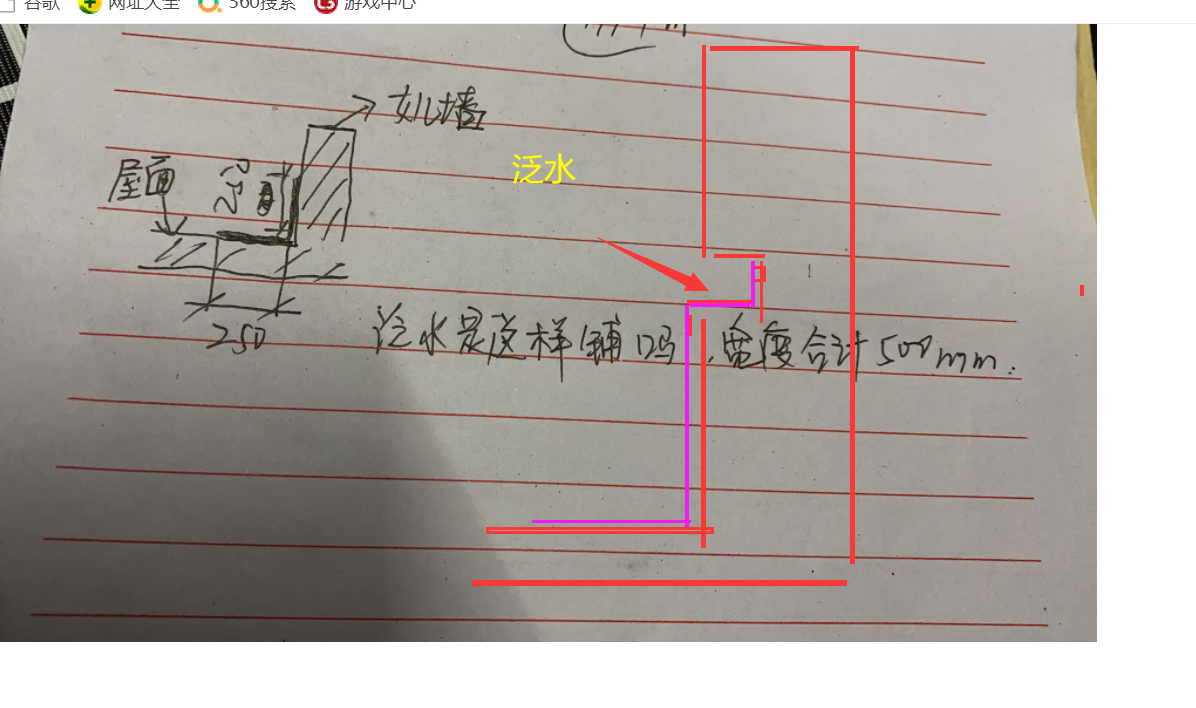 谷歌 网址大全 360搜索 游戏中心
女儿墙
泛水
屋面
250
泛水是这样铺吗,宽度合计500mm.